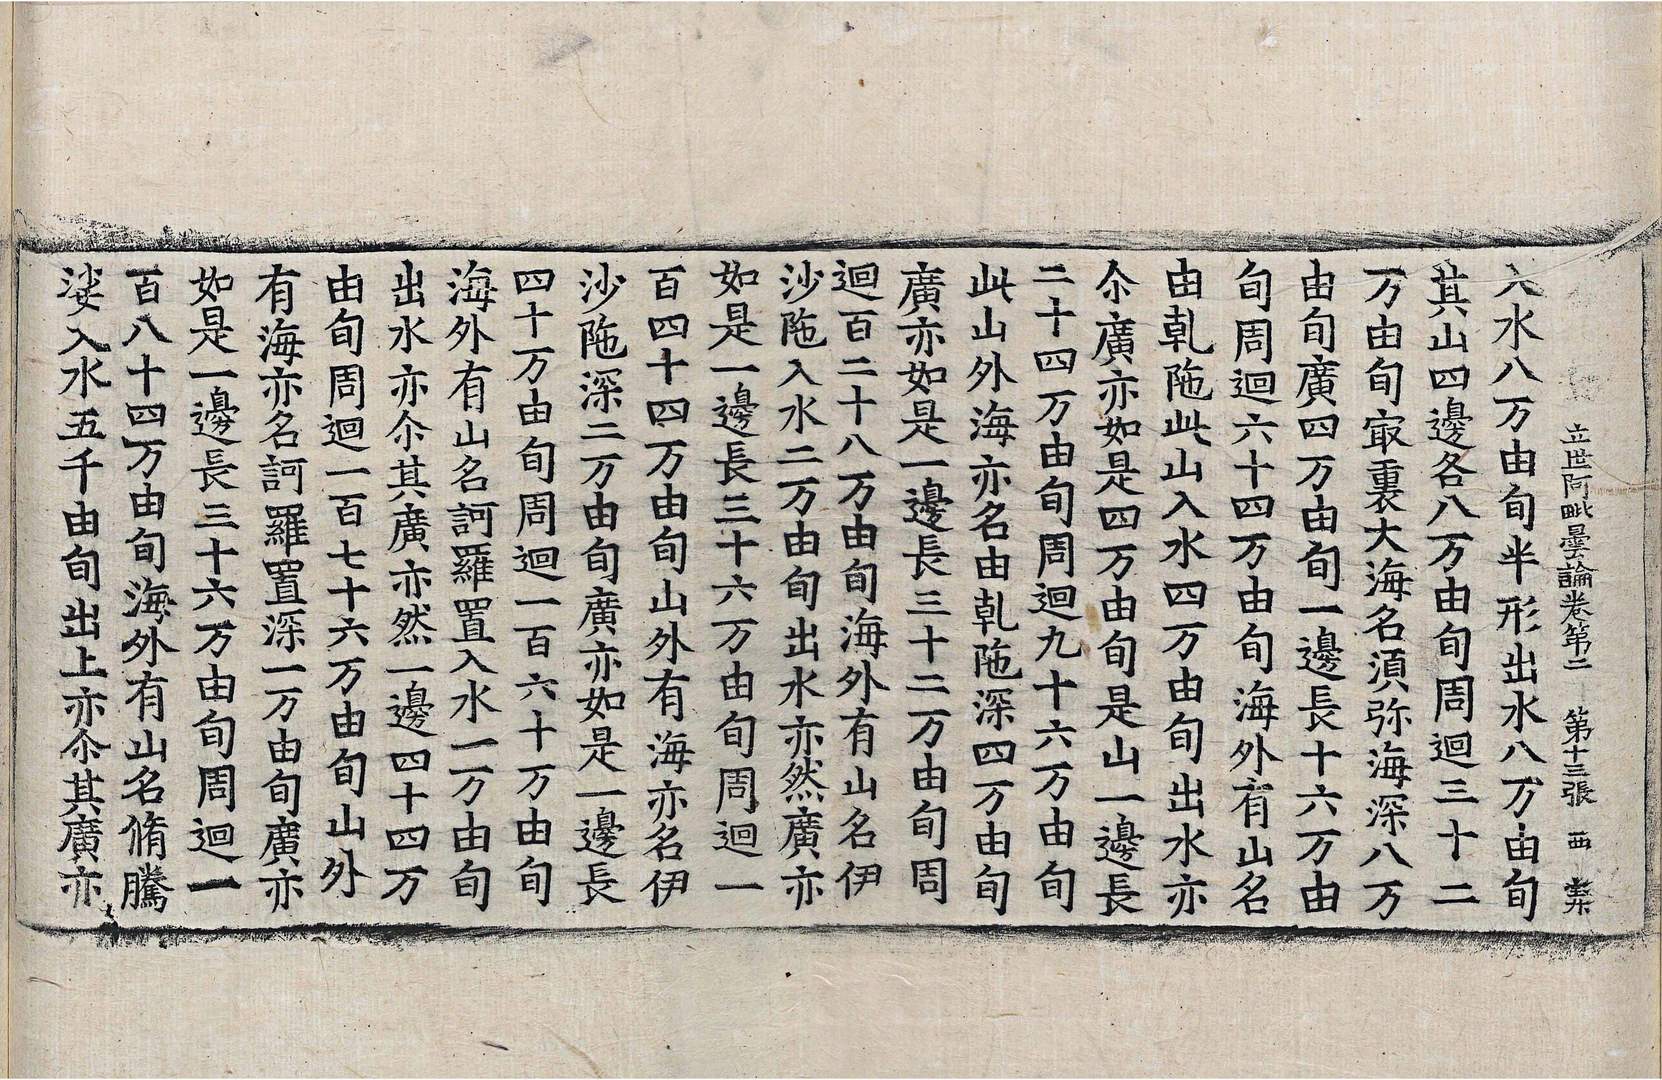 立世阿毗曇論卷第二 第十三張 西
入水八万由旬半形出水八万由旬
其山四邊各八万由旬周迴三十二
万由旬㝡裏大海名湏弥海深八万
由旬廣四万由旬一邊長十六万由
旬周迴六十四万由旬海外有山名
由乹陁此山入水四万由旬出水亦
尒廣亦如是四万由旬是山一邊長
二十四万由旬周迴九十六万由旬
此山外海亦名由乹陁深四万由旬
廣亦如是一邊長三十二万由旬周
迴百二十八万由旬海外有山名伊
沙陁入水二万由旬出水亦然廣亦
如是一邊長三十六万由旬周迴一
百四十四万由旬山外有海亦名伊
沙陁深二万由旬廣亦如是一邊長
四十万由旬周迴一百六十万由旬
海外有山名訶羅置入水一万由旬
出水亦尒其廣亦然一邊四十四万
由旬周迴一百七十六万由旬山外
有海亦名訶羅置深一万由旬廣亦
如是一邊長三十六万由旬周迴一
百八十四万由旬海外有山名脩騰
娑入水五千由旬出上亦尒其廣亦